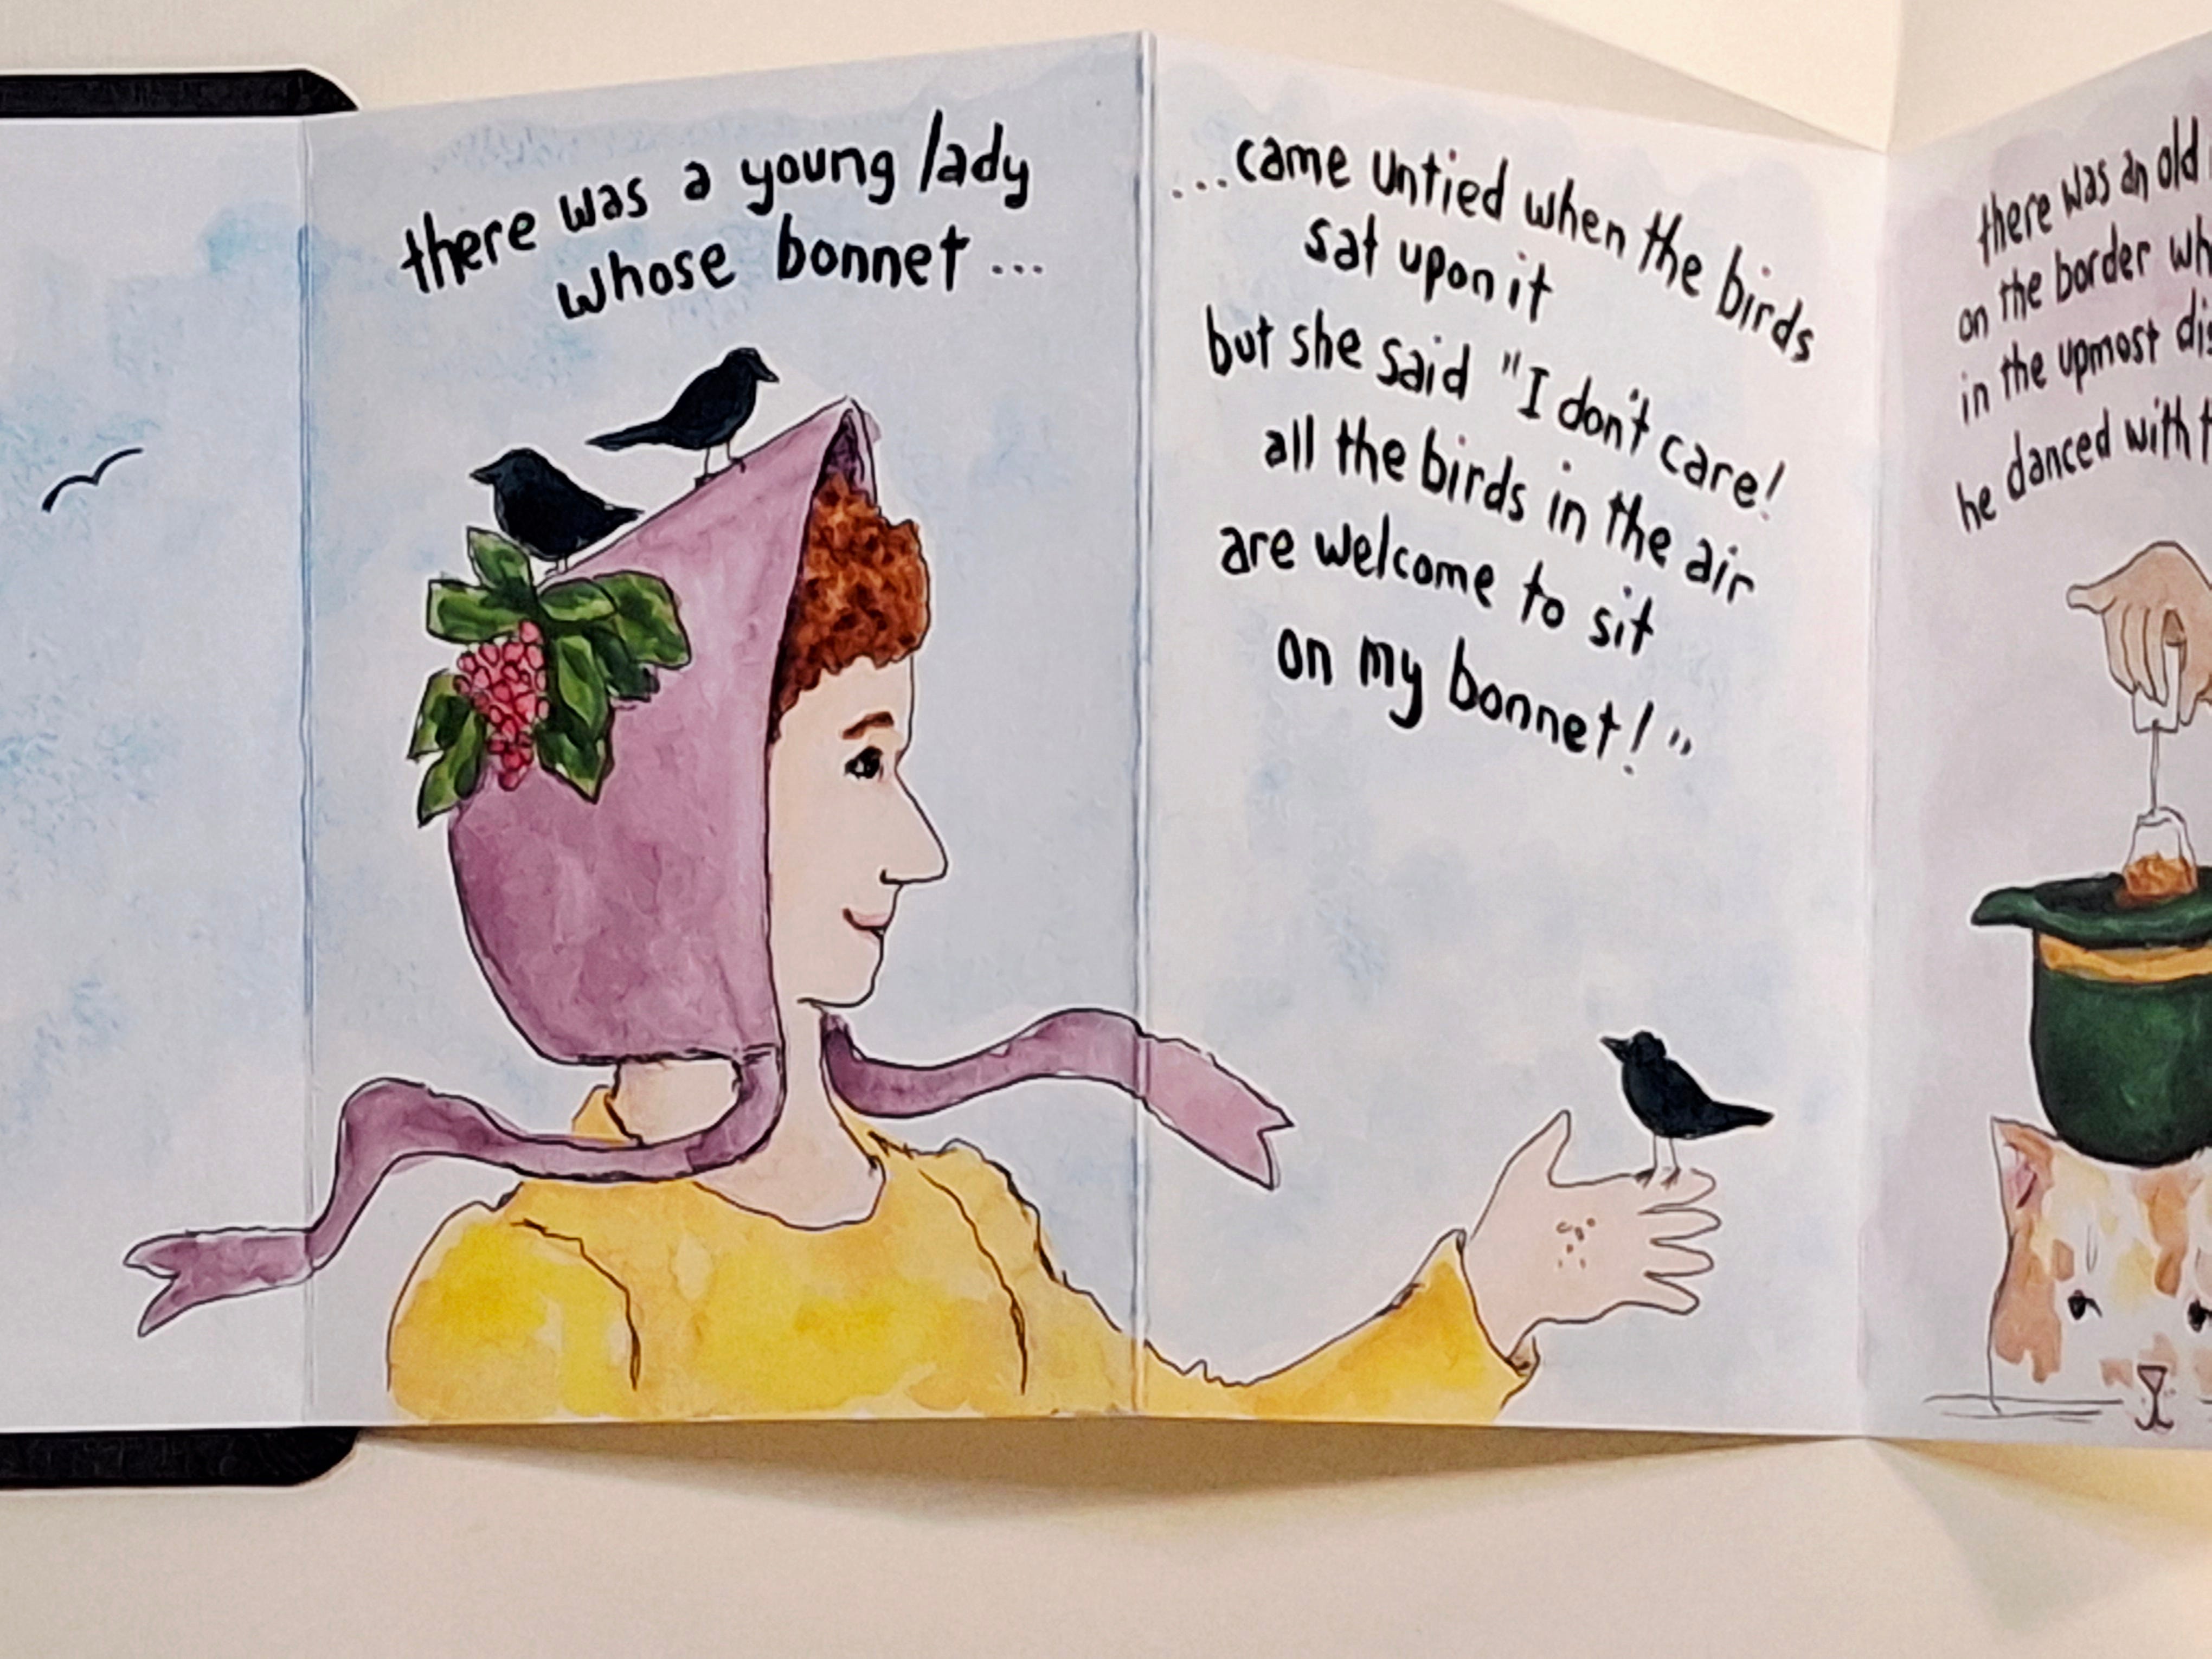 there was a young lady
whose bonnet ...
...came untied when the birds
sat upon it
but she said "I don't care!
all the birds in the air
are welcome to sit
on my bonnet!"
there was an old
on the border
in the upmost
he danced with